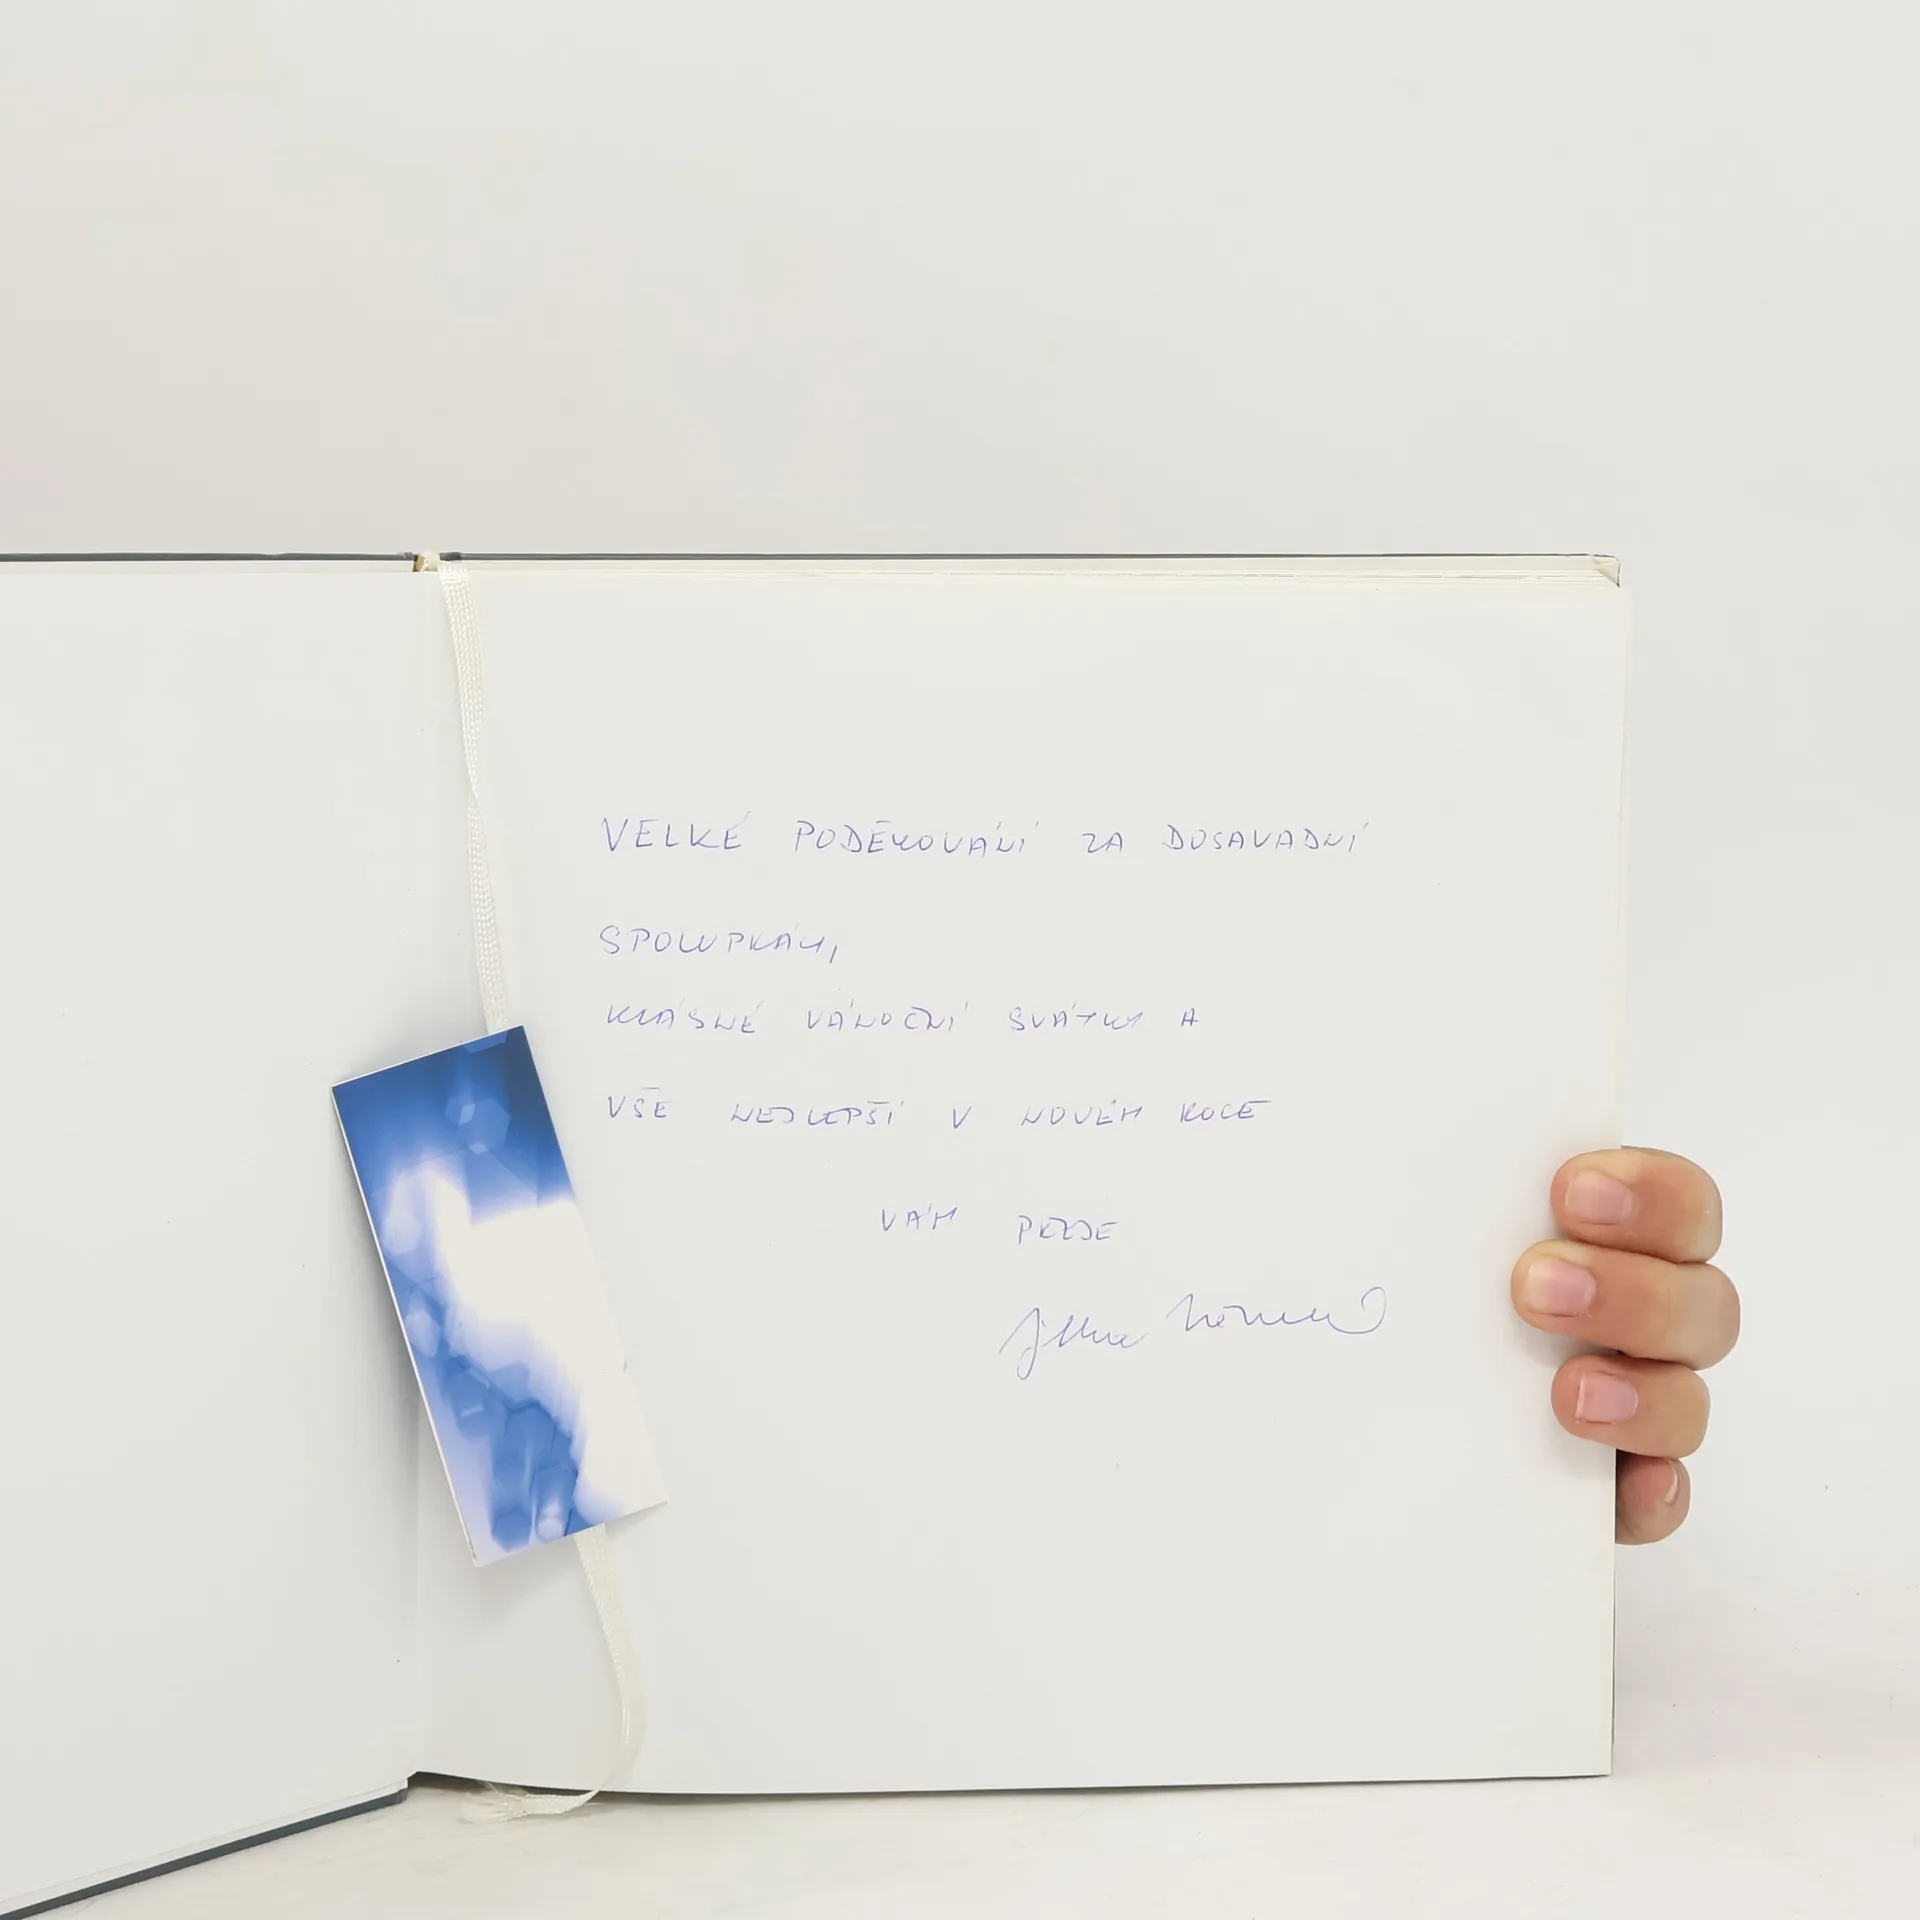 VELKÉ PODĚKOVÁNÍ ZA DOSAVADNÍ
SPOLUPRÁCI,
KRÁSNÉ VÁNOČNÍ SVÁTKY A
VŠE NEJLEPŠÍ V NOVÉM ROCE
VÁM PŘEJE